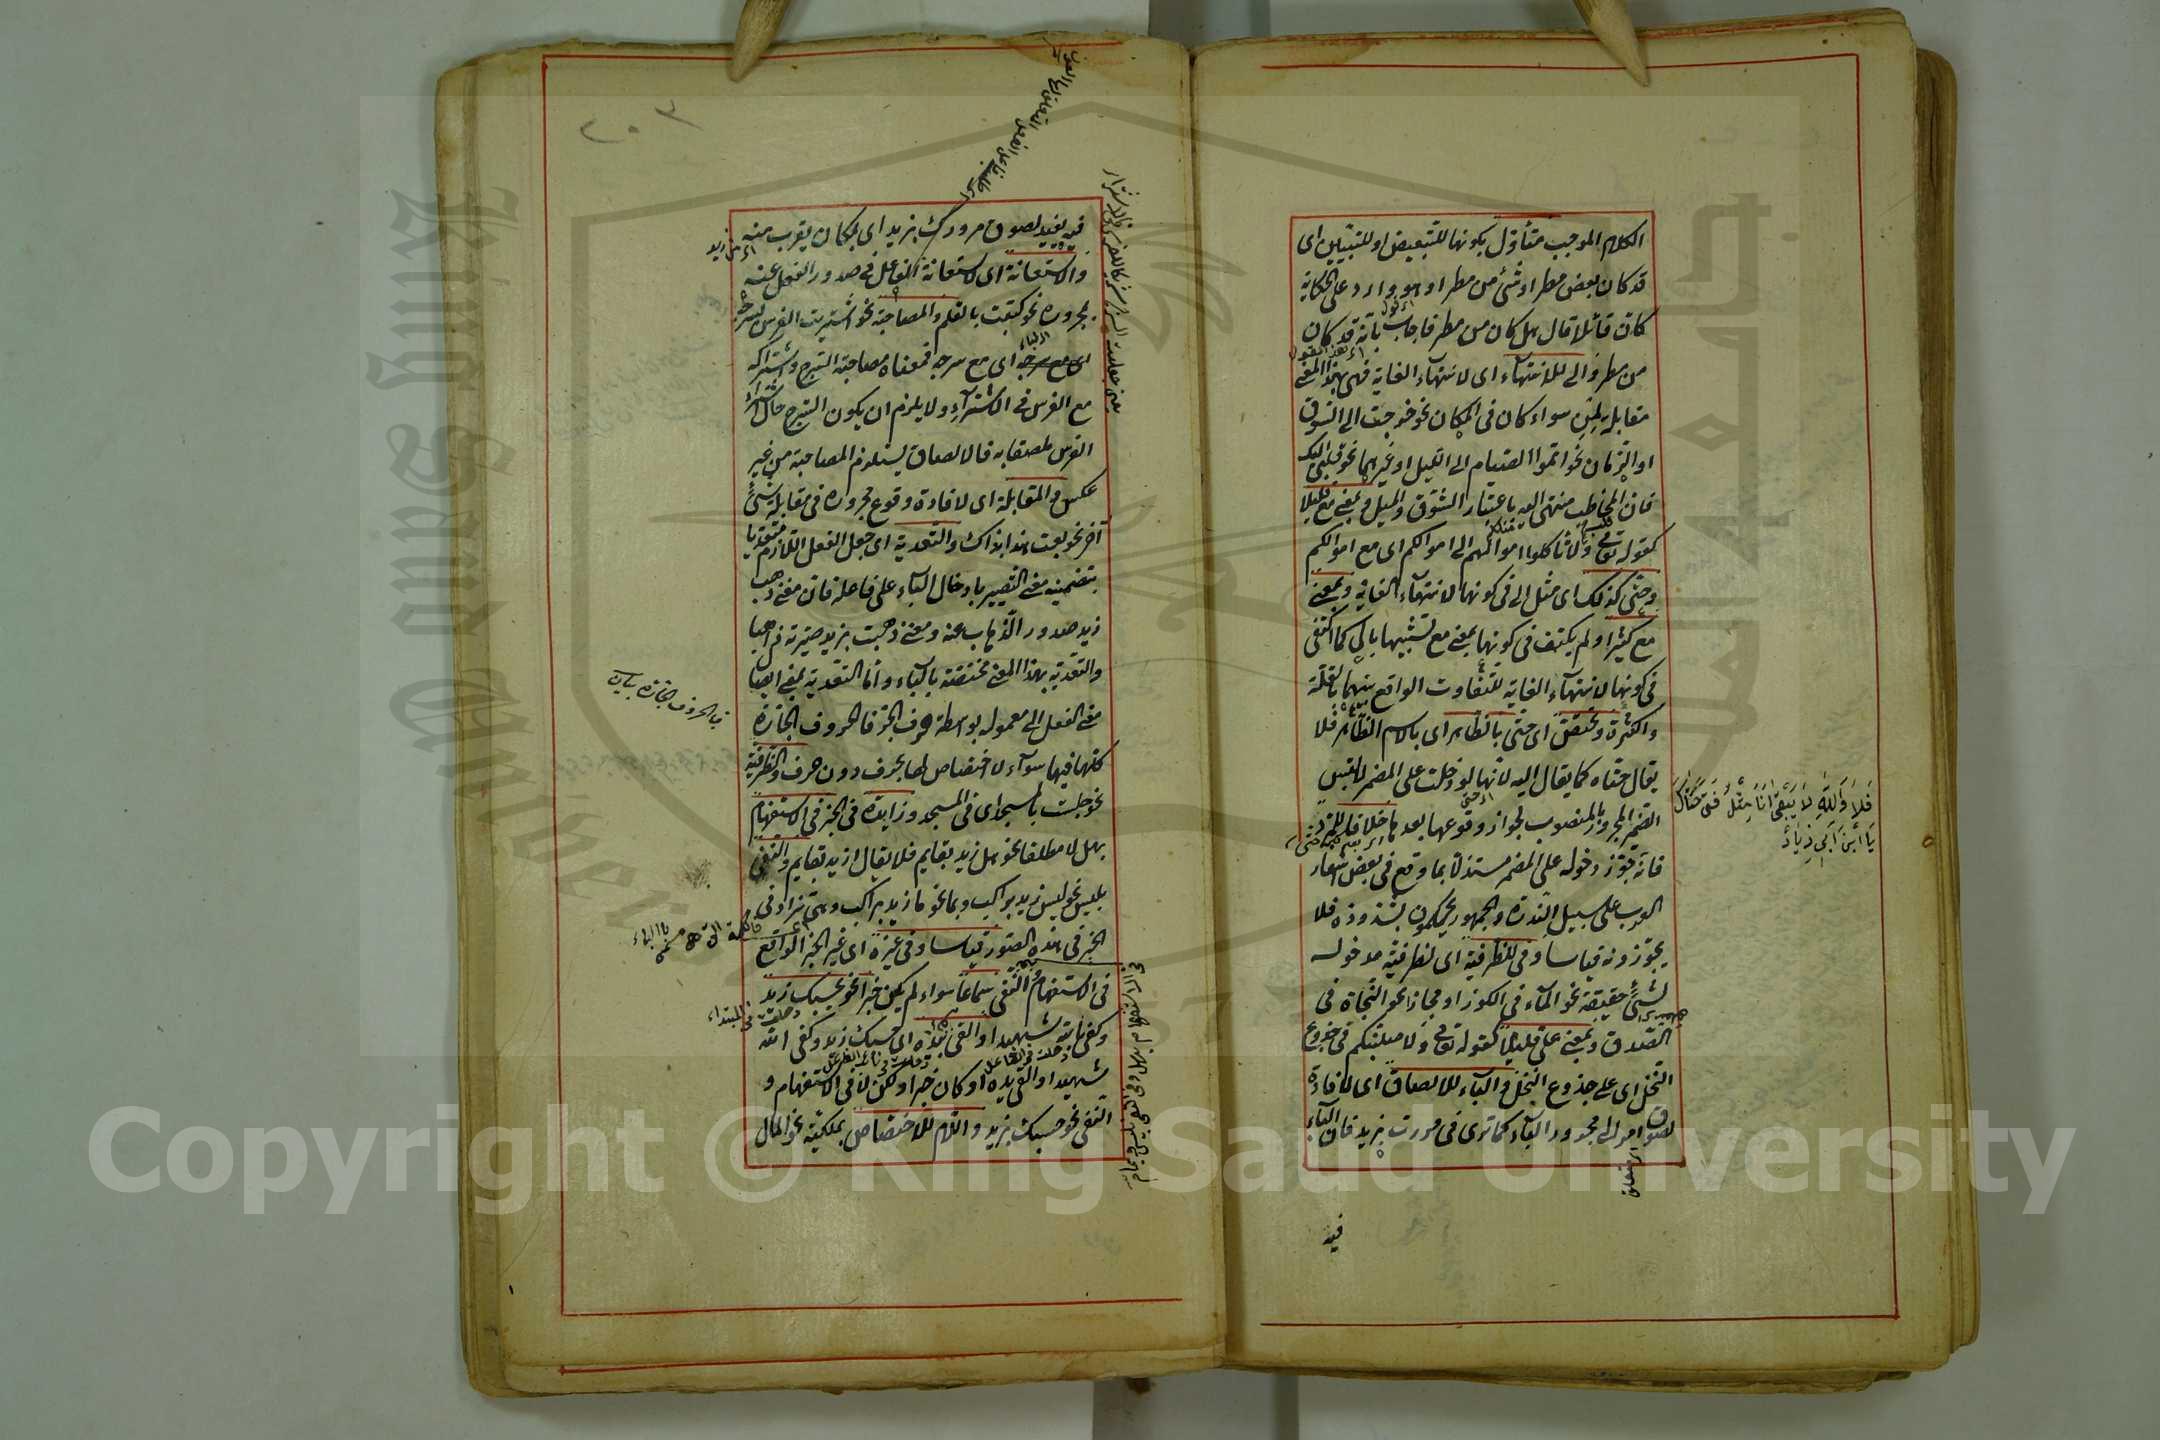 الكلام الموجب متأول بكونها للتبعيض او للتبيين اى
قد كان بعض مطر او شئ من مطر او هو وارد على الحكاية
كان قائلا قال هل كان من مطر فاجاب بانه قد كان
من مطر والى للانتهاء اى لانتهاء الغاية فهى بهذا المعنى
مقابلة لمن سواء كان فى المكان نحو خرجت الى السوق
او الزمان نحو اتموا الصيام الى الليل او غيرهما نحو قلبى اليك
فان المخاطب منتهى اليه باعتبار الشوق والميل وبمعنى مع قليلا
كقوله تعالى ولا تاكلوا اموالهم الى اموالكم اى مع اموالكم
وحتى كذلك اى مثل الى فى كونها لانتهاء الغاية وبمعنى
مع كثيرا ولم يكتف فى كونها بمعنى مع تشبيهها بالى كما اكتفى
فى كونها لانتهاء الغاية للتفاوت الواقع بينهما بالقلة
والكثرة وتختص اى حتى بالظاهر اى بالاسم الظاهر فلا
يقال حتاه كما يقال اليه لانها لو دخلت على المضمر لالتبس
الضمير المجرور بالمنصوب لجواز وقوعها بعدها خلافا للمبرد
فانه جوز دخوله على المضمر مستدلا بما وقع فى بعض اشعار
العرب على سبيل الندرة والجمهور يحكمون بشذوذه فلا
يجوزونه قياسا وفى للظرفية اى لظرفية مدخوله
لشئ حقيقة نحو الماء فى الكوز او مجازا نحو النجاة فى
الصدق وبمعنى على قليلا كقوله تعالى ولاصلبنكم فى جذوع
النخل اى على جذوع النخل والباء للالصاق اى لافادة
لصوق امر الى مجرور الباء كما ترى فى مررت بزيد فان الباء
فيه
فَلَا وَاللهِ لَا يَبْقَى اُنَاسٌ فَتًى حَتَّاكَ
يَا ابْنَ اَبِى زِيَاد
٢٠٣
فيه يفيد لصوق مرورك بزيد اى بمكان يقرب منه
والاستعانة اى لاستعانة الفاعل فى صدور الفعل عنه
بمجروره نحو كتبت بالقلم والمصاحبة نحو اشتريت الفرس بسرجه
اى مع سرجه فمعناه مصاحبة السرج واشتراكه
مع الفرس فى الاشتراء ولا يلزم ان يكون السرج حال اشتراء
الفرس ملصقا به فالالصاق يستلزم المصاحبة من غير
عكس والمقابلة اى لافادة وقوع مجروره فى مقابلة شئ
آخر نحو بعت هذا بذاك والتعدية اى جعل الفعل اللازم متعديا
بتضمينه معنى التصيير بادخال الباء على فاعله فان معنى ذهب
زيد صدور الذهاب عنه ومعنى ذهبت بزيد صيرته ذاهبا
والتعدية بهذا المعنى مختصة بالباء واما التعدية بمعنى ايصال
معنى الفعل الى معموله بواسطة حرف الجر فالحروف الجارة
كلها فيها سواء لا اختصاص لها بحرف دون حرف والظرفية
نحو جلست بالمسجد اى فى المسجد وزائدة فى الخبر فى الاستفهام
بهل لا مطلقا نحو هل زيد بقايم فلا يقال ازيد بقايم والنفى
بليس نحو ليس زيد براكب وبما نحو ما زيد براكب وهى تزاد فى
الخبر فى هذه الصور قياسا وفى غيره اى غير الخبر الواقع
فى الاستفهام والنفى سماعا سواء لم يكن خبرا نحو بحسبك زيد
وكفى بالله شهيدا والقى بيده اى حسبك زيد وكفى الله
شهيدا والقى يده او كان خبرا ولكن لا فى الاستفهام و
النفى نحو حسبك بزيد واللام للاختصاص بملكية نحو المال